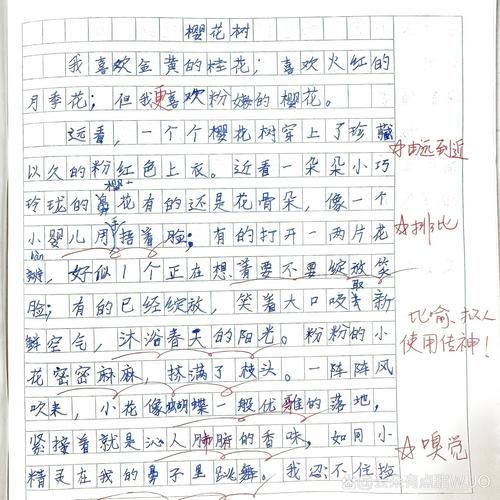 樱花树
我喜欢金黄的桂花；喜欢火红的
月季花；但我更喜欢粉嫩的樱花。
远看，一个个樱花树穿上了珍藏
以久的粉红色上衣。近看一朵朵小巧
☆由远到近
玲珑的樱花有的还是花骨朵，像一个
小婴儿用手捂着脸；有的打开一两片花
☆排比
瓣，好似1个正在想着要不要绽放笑
脸；有的已经绽放，笑着大口吸取新
鲜空气，沐浴春天的阳光。粉粉的小
比喻、拟人
使用传神！
花密密麻麻，挤满了枝头。一阵阵风
吹来，小花像蝴蝶一般优雅的落地，
紧接着就是沁人肺腑的香味，如同小
☆嗅觉
精灵在我的鼻子里跳舞。我忍不住